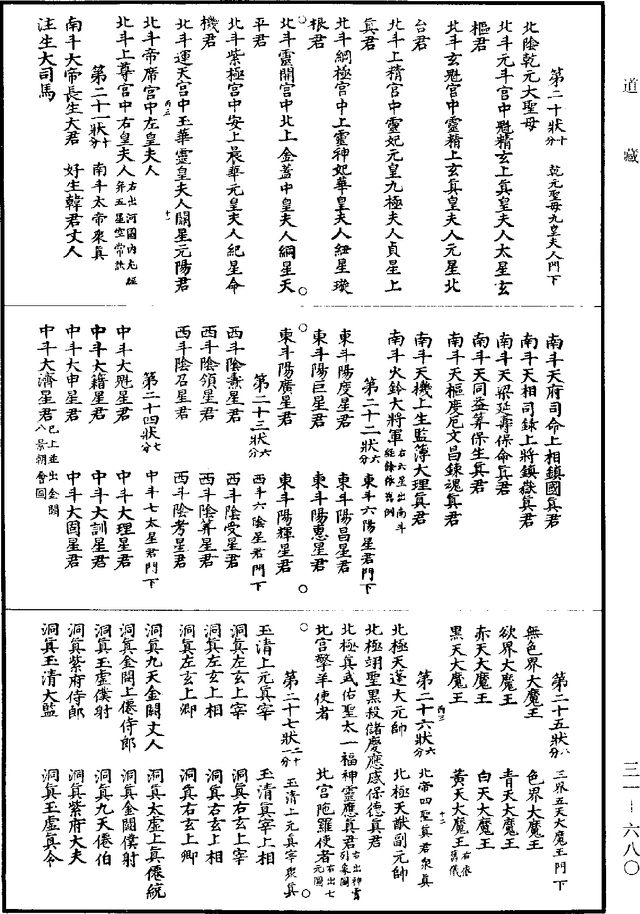 道藏
第二十狀十分　乾元聖母九皇夫人門下
北陰乾元大聖母
北斗元斗宮中魁精玄上眞皇夫人太星玄
樞君
北斗玄魁宮中靈精上玄眞皇夫人元星北
台君
北斗上精宮中靈妃元皇九極夫人貞星上
眞君
北斗綱極宮中上靈神妃華皇夫人紐星璇
根君
北斗靈開宮中北上金蓋中皇夫人綱星天
平君
北斗紫極宮中安上晨華元皇夫人紀星命
機君
北斗運天宮中玉華靈皇夫人關星元陽君
北斗帝席宮中左皇夫人
北斗上尊宮中右皇夫人
第二十一狀十分　南斗大帝衆眞
南斗大帝長生大君　好生韓君丈人
注生大司馬
南斗天府司命上相鎮國眞君
南斗天相司錄上將鎮嶽眞君
南斗天梁延壽保命眞君
南斗天同益筭保生眞君
南斗天樞度厄文昌鍊魂眞君
南斗天機上生監簿大理眞君
南斗火鈴大將軍右六星出南斗
第二十二狀六分　東斗六陽星君門下
東斗陽度星君　東斗陽昌星君
東斗陽巨星君　東斗陽惠星君
東斗陽廣星君　東斗陽輝星君
第二十三狀六分　西斗六陰星君門下
西斗陰素星君　西斗陰受星君
西斗陰領星君　西斗陰筭星君
西斗陰召星君　西斗陰考星君
第二十四狀七分　中斗七太星君門下
中斗大魁星君　中斗大理星君
中斗大籍星君　中斗大訓星君
中斗大申星君　中斗大固星君
中斗大濟星君已上並出金闕八景朝會圖
第二十五狀八分　三界五天大魔王門下
無色界大魔王　色界大魔王
欲界大魔王　青天大魔王
赤天大魔王　白天大魔王
黑天大魔王　黃天大魔王右依舊儀
第二十六狀六分　北帝四聖眞君衆眞
北極天蓬大元帥　北極天猷副元帥
北極翊聖黑殺儲慶應感保德眞君
北極眞武佑聖太一福神靈應眞君
北宮擎羊使者　北宮陀羅使者
第二十七狀二十一分　玉清上元眞宰衆眞
玉清上元眞宰　玉清眞宰上相
洞眞左玄上宰　洞眞右玄上宰
洞眞左玄上相　洞眞右玄上相
洞眞左玄上卿　洞眞右玄上卿
洞眞九天金闕丈人　洞眞太虛上眞僊統
洞眞金闕上僊侍郎　洞眞金闕僕射
洞眞玉虛僕射　洞眞九天僊伯
洞眞紫府侍郎　洞眞紫府大夫
洞眞玉清大監　洞眞玉虛眞令
三一—六八〇